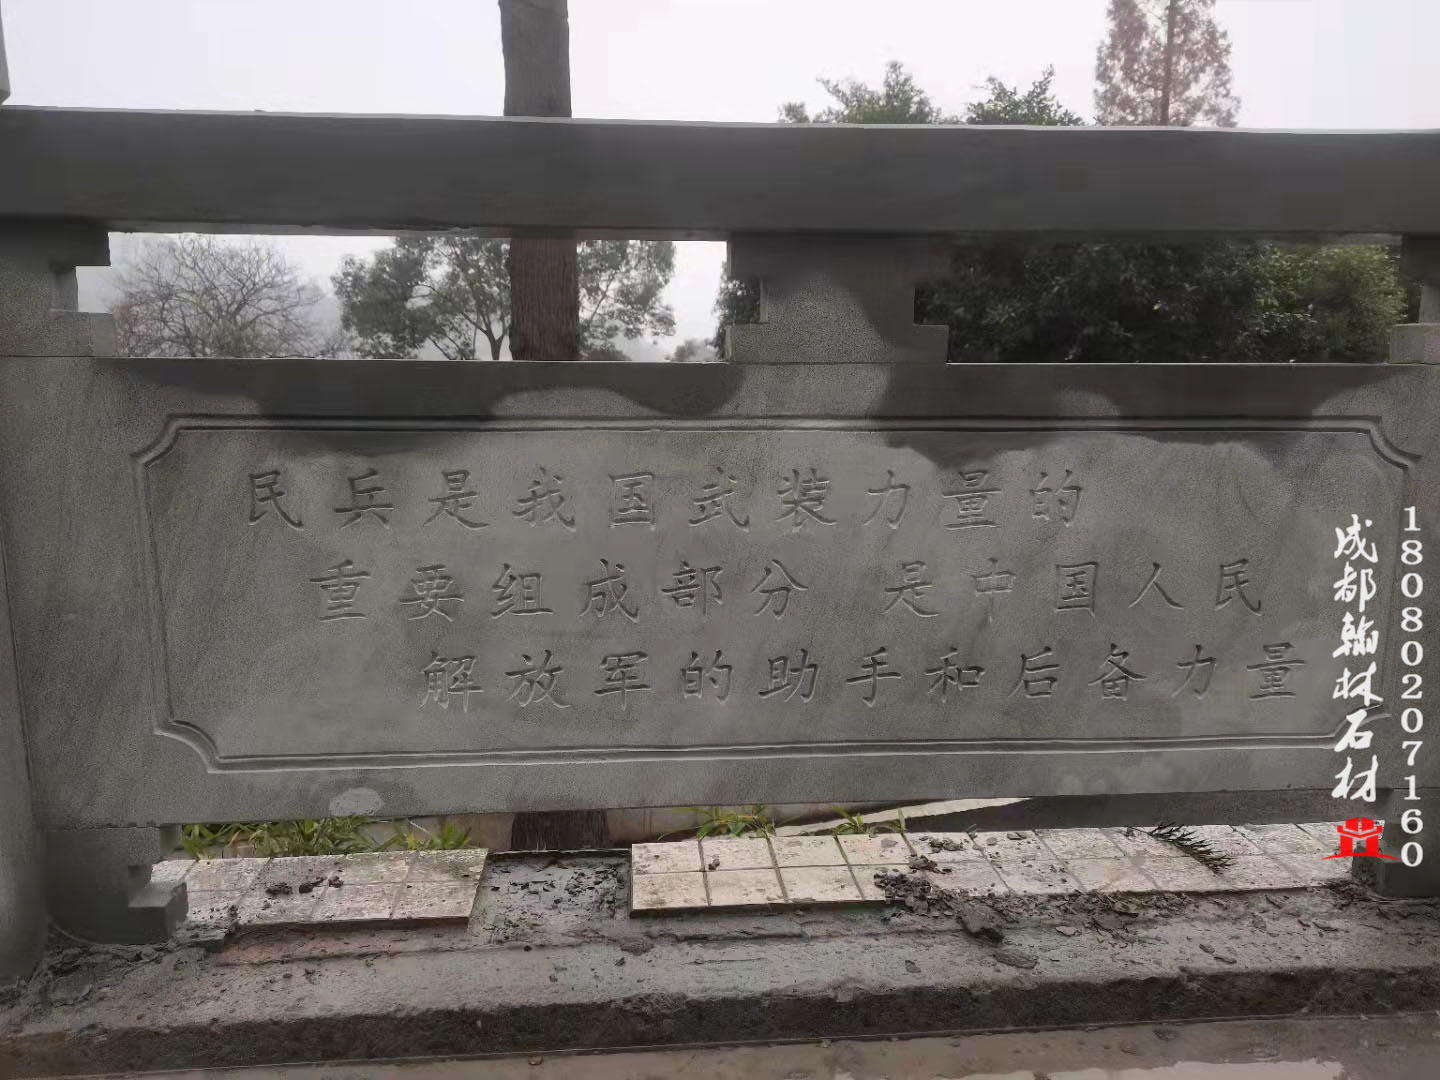 民兵是我国武装力量的
重要组成部分 是中国人民
解放军的助手和后备力量
成都翰林石材
18080207160